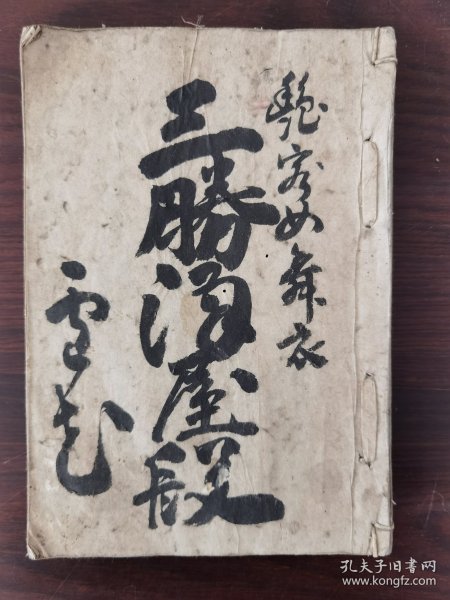 艶容女舞衣
三勝酒屋段
孔夫子旧书网
www.kongfz.com